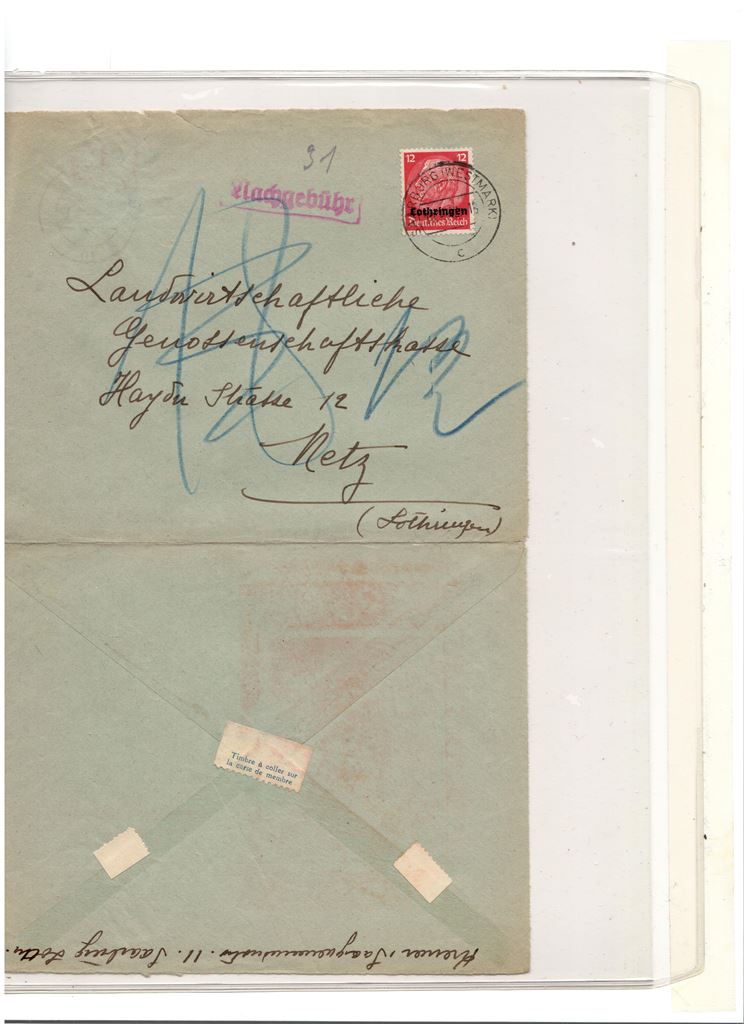 31
Nachgebühr
12 12
Lothringen
Deutsches Reich
BURG (WESTMARK)
c
Landwirtschaftliche
Genossenschaftskasse
Haydn Strasse 12
Metz
(Lothringen)
12
Timbre à coller sur
la carte de membre
11. Saarburg Lothr.